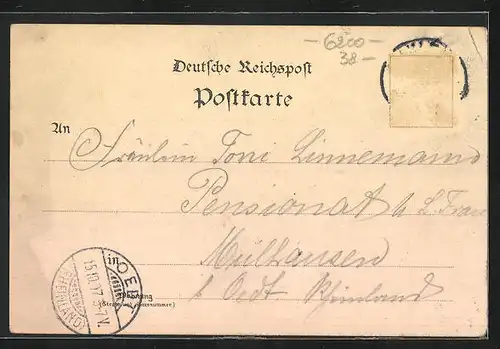 6200
38
Deutsche Reichspost
Postkarte
An
Fräulein Toni Linnemann
Pensionat
Mülhausen
in
b. Oedt Rheinland
Wohnung
(Straße und Hausnummer)
OEDT
(RHEINLAND)